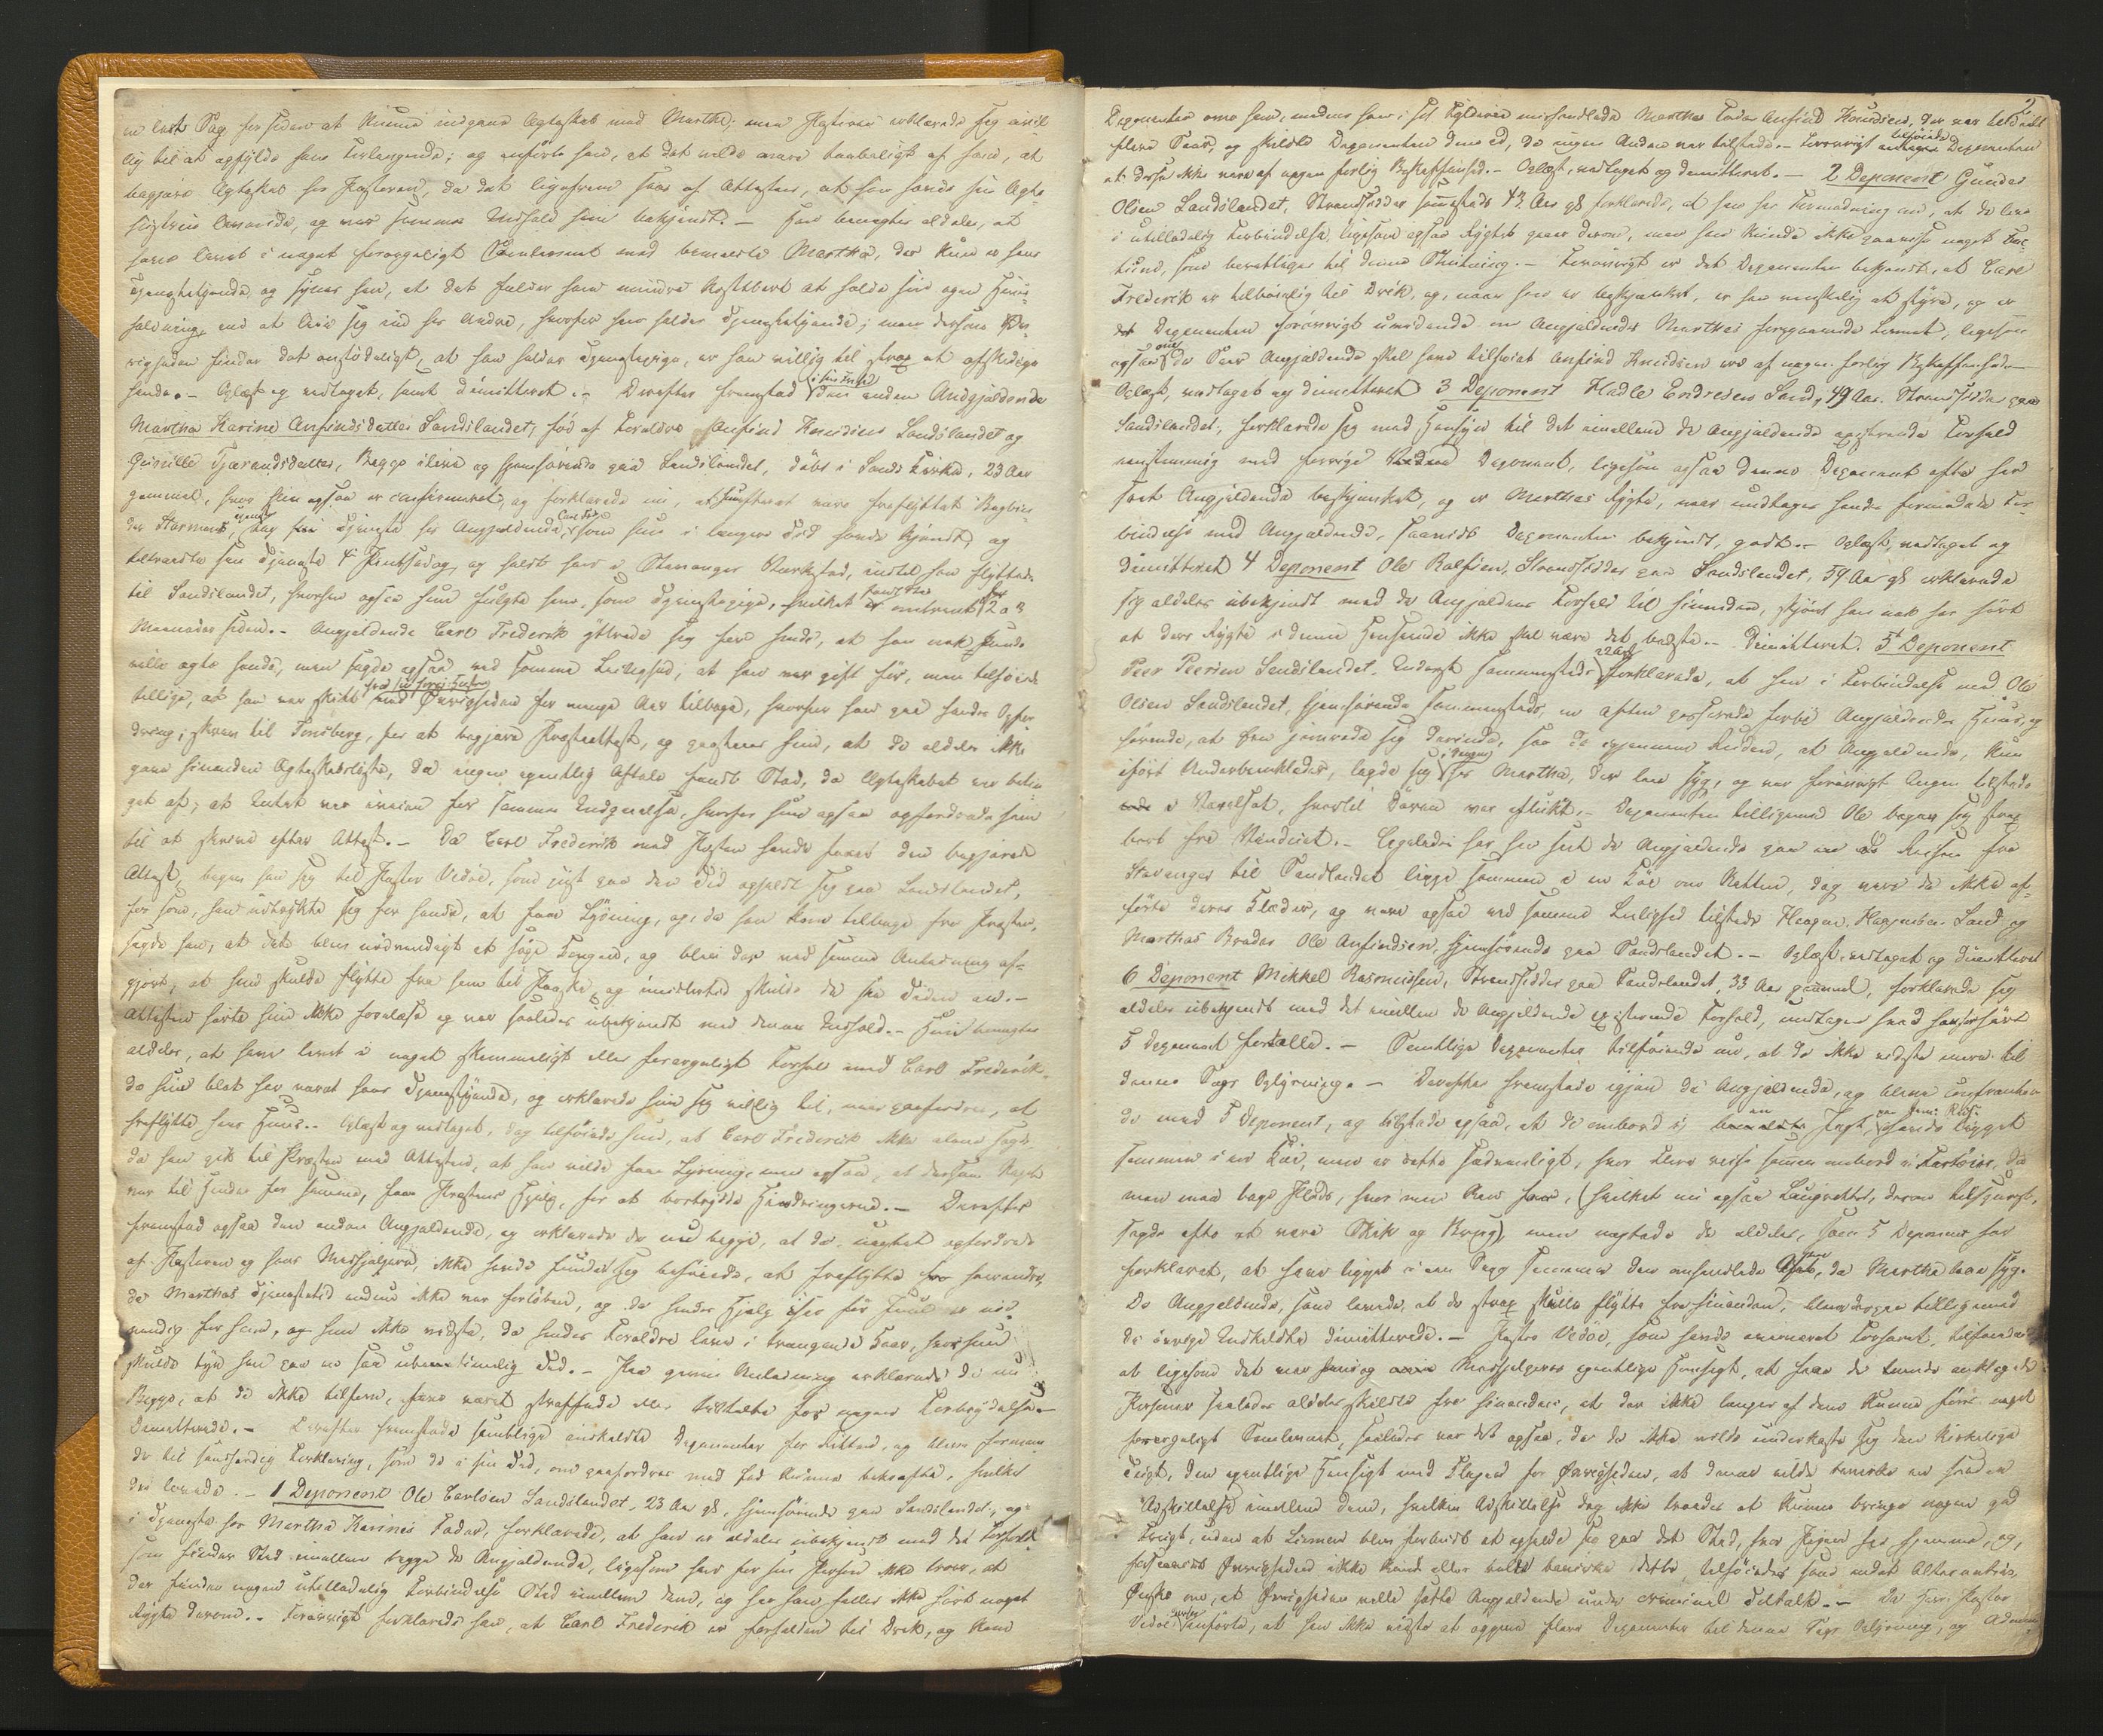 lig til at opfylde hans Forlangende; og anförte han, at det vilde være taabeligt af ham, at
begjære Ægteskab hos Pastoren, da det ligefrem saaes af Attesten, at han havde sin Ægte
han levet i noget forargeligt Samlevnet med bemeldte Martha, der kun er hans
Tjenestetyende, og synes han, at det falder ham mindre kostbart at holde sin egen Huus
holdning, end at leie sig ind hos Andre, hvorfor han holder Tjenestetyende; men dersom Øv
righeden finder det anstödeligt, at han holder Tjenestepige, er han villig til strax at afskedige
hende. - Oplæst og vedtaget, samt dimitteret. - Derefter fremstod den anden Angjældende
Martha Karine Anfindsdatter Sandslandet, fød af Forældre Anfind Knudsen Sandslandet og
Gunille Tjerandsdatter, Begge ilive og hjemhörende paa Sandslandet, döbt i Sands Kirke, 23 Aar
gammel, hvor hun ogsaa er confirmeret, og forklarede
Tjeneste hos Angjældende, Carl Fred. som hun i længere Tid havde kjendt, og
tiltraadte sin Tjeneste og holdt han i Stavanger Værksted, indtil han flyttede
til Sandslandet, hvorhen ogsaa hun fulgte ham, som Tjenestepige, hvilket omtrent 2 a 3
Maaneder siden. - Angjældende Carl Frederik yttrede sig for hende, at han nok kunde
ville ægte hende, men sagde ogsaa ved samme Leilighed, at han var gift för, men tilföiede
tillige, at han var skilt ved Øvrigheden for mange Aar tilbage, hvorfor han paa hendes Opfor
dring, skrev til Tönsberg, for at begjære Præsteattest, og paastaaer hun, at de aldeles ikke
gave hinanden Ægteskabslöfte, da ingen egentlig Aftale fandt Sted, da Ægteskabet var betin
get af, at Intet var iveien for sammes Indgaaelse, hvorfor hun ogsaa opfordrede ham
til at skrive efter Attest. - Da Carl Frederik med Posten havde faaet den begjærte
Attest, begav han sig til Pastor Vedöe, som just paa den Tid opholdt sig paa Sandslandet,
for som, han udtrykte sig for hende, at faae Lysning, og, da han kom tilbage fra Præsten,
sagde han, at det blev nödvendigt at söge Kongen, og blev der ved samme Anledning af-
gjort, at hun skulde flytte fra ham til Paaske, og imidlertid skulde de see Tiden an. -
Attesten hörte hun ikke forelæse og var saaledes ubekjendt med dennes Indhold. - Hun benægter
aldeles, at have levet i noget skammeligt eller forargeligt Forhold med Carl Frederik,
da hun blot har været hans Tjenestetyende, og erklærede hun sig villig til, naar paafordres, at
fraflytte hans Huus. - Oplæst og vedtaget, dog tilföiede hun, at Carl Frederik ikke alene sagde
da han gik til Præsten med Attesten, at han vilde faae Lysning, men ogsaa, at dersom Noget
var til Hinder for samme, faae Præstens Hjelp, for at bortrydde Hindringerne. - Derefter
fremstod ogsaa den anden Angjældende, og erklærede de nu begge, at de, uagtet opfordrede
af Pastoren og hans Medhjælpere, ikke havde fundet sig beföiede, at fraflytte fra hverandre,
da Marthas Tjenestetid endnu ikke var forlöben, og da hendes Hjelp især för Juul er nöd
vendig for ham, og hun ikke vidste, da hendes Forældre leve i trængende Kaar, hvorhen hun
skulde tye hen paa en saa ubestemmelig Tid. - Paa given Anledning erklærede de nu
Begge, at de ikke tilforn, have været straffede eller tiltalte for nogen Forbrydelse. -
Demitterede. - Derefter fremstode samtlige indkaldte Deponenter for Retten, og bleve forman
de til sandfærdig Forklaring, som de i sin Tid, om paafordres med Eed kunne bekræfte, hvilket
de lovede. - 1 Deponent Ole Carlsen Sandslandet, 23 Aar gl, hjemhörende paa Sandslandet, og
i Tjeneste hos Martha Karines Fader, forklarede, at han er aldeles ubekjendt med det Forhold
som finder Sted imellem begge de Angjældende, ligesom han for sin Person ikke troer, at
der finder nogen utilladelig Forbindelse Sted imellem dem, og har han heller ikke hört noget
Rygte derom. - Forövrigt forklarede han, at Carl Frederik er forfalden til Drik, og kom
2
Deponenten over ham, medens han i sit Fylderie mishandlede Marthas Fader Anfind Knudsen, der var tildeelt
flere Saar, og skildte Deponenten dem ad, da ingen Anden var tilstede. - Forövrigt tilföiede Deponenten
at disse ikke vare af nogen farlig Beskaffenhed. - Oplæst, vedtaget og demitteret. - 2 Deponent Gunder
Olsen Sandslandet, Strandsidder sammesteds 43 Aar gl forklarede, at han har Formodning om, at de leve
i utilladelig Forbindelse, ligesom ogsaa Rygtet gaaer derom, men han kunde ikke paavise noget Fac
tum, som berettiger til denne Slutning. - Forövrigt er det Deponenten bekjendt, at Carl
Frederik er tilböielig til Drik, og, naar han er beskjænket, er han vanskelig at styre, og er
Deponenten forövrigt uvidende om Angjældendes Marthas foregaaende Levnet, ligesom
ogsaa om de Saar Angjældende skal have tilföiet Anfind Knudsen vare af nogen farlig Beskaffenhed. -
Oplæst, vedtaget og dimitteret 3 Deponent Hadle Endresen Sand, 49 Aar. Strandsidder paa
Sandslandet, forklarede sig med Hensyn til det imellem de Angjældende existerende Forhold
eenstemmig med forrige Deponent, ligesom ogsaa denne Deponent ofte har
seet Angjældende beskjænket, og er Marthas Rygte, naar undtages hendes formodede For
bindelse med Angjældende, saavidt Deponenten bekjendt, godt. - Oplæst, vedtaget og
dimitteret 4 Deponent Ole Rolfsen, Strandsidder paa Sandslandet, 59 Aar gl erklærede
sig aldeles ubekjendt med de Angjældenes Forhold til hinanden, skjönt han nok har hört
at deres Rygte i denne Henseende ikke skal være det bedste. - Dimitteret. 5t Deponent
Peer Peersen Sandslandet, Inderst sammesteds 22 Aar forklarede, at han i Forbindelse med Ole
Olsen Sandslandet, hjemhörende sammesteds, en Aften passerede forbi Angjældendes Huus, og
hörende, at Een jamrede sig derinde, saa de igjennem Ruden, at Angjældende, kun
iført Underbeenklæder, lagde sig i Sengen hos Martha, der laae syg, og var forövrigt Ingen tilstede
i Værelset, hvortil Dören var aflukt. - Deponenten tilligemed Ole begav sig strax
bort fra Vinduet. - Ligeledes har han seet de Angjældende paa en Reise fra
Stavanger til Sandslandet ligge sammen i en Köie om Natten, dog vare de ikke af-
förte deres Klæder, og vare ogsaa ved samme Leilighed tilstede Haagen Sand og
Marthas Broder Ole Anfindsen, hjemhörende paa Sandslandet. - Oplæst, vedtaget og dimitteret
6 Deponent Mikkel Rasmussen, Strandsidder paa Sandslandet, 33 Aar gammel, forklarede sig
aldeles ubekjendt med det imellem de Angjældende existerende Forhold, undtagen hvad han har hört
5 Deponent fortælle. - Samtlige Deponenter tilföiede nu, at de ikke vidste mere til
denne Sags Oplysning. - Derefter fremstode igjen de Angjældende, og bleve confrontere
de med 5 Deponent, og tilstode ogsaa, at de ombord i en Jagt, paa denne Reise havde ligget
sammen i en Köie, men er dette sædvanligt, hvor Flere reise sammen ombord i Fartöier, da
man maa tage Plads, hvor man kan faae, (hvilket nu ogsaa Laugrettet, derom tilspurgt,
sagde ofte at være Skik og Brug), men nægtede de aldeles, som 5 Deponent har
forklaret, at have ligget i een Seng sammen den omhandlede Aften, da Martha laae syg.
De Angjældende, som lovede, at de strax skulle flytte fra hinanden, bleve tilligemed
de övrige Indkaldte dimitterede. - Pastor Vedöe, som havde overværet Forhöret, tilföiede
at ligesom det var hans og Medhjælperes egentlige Hensigt, at faae de tvende anklagede
Personer saaledes aldeles skildte fra hinanden, at der ikke længer af dem kunne föres noget
forargeligt Samlevnet, saaledes var det ogsaa, da de ikke vilde underkaste sig den kirkelige
Tugt, den egentlige Hensigt med Klagen for Øvrigheden, at denne vilde bevirke en saadan
Adskillelse imellem dem, hvilken Adskillelse dog ikke troedes at kunne bringe nogen god
Frugt, uden at Manden blev forbudt at opholde sig paa det Sted, hvor Pigen har hjemme, og,
forsaavidt Øvrigheden ikke kunde eller vilde bevirke dette, tilföiedes
Ønske om, at Øvrigheden ville sætte Angjældende under criminel Tiltale. - Da Herr Pastor
Vedöe anförte, at han ikke vidste at opgive flere Deponenter til denne Sags Oplysning, og